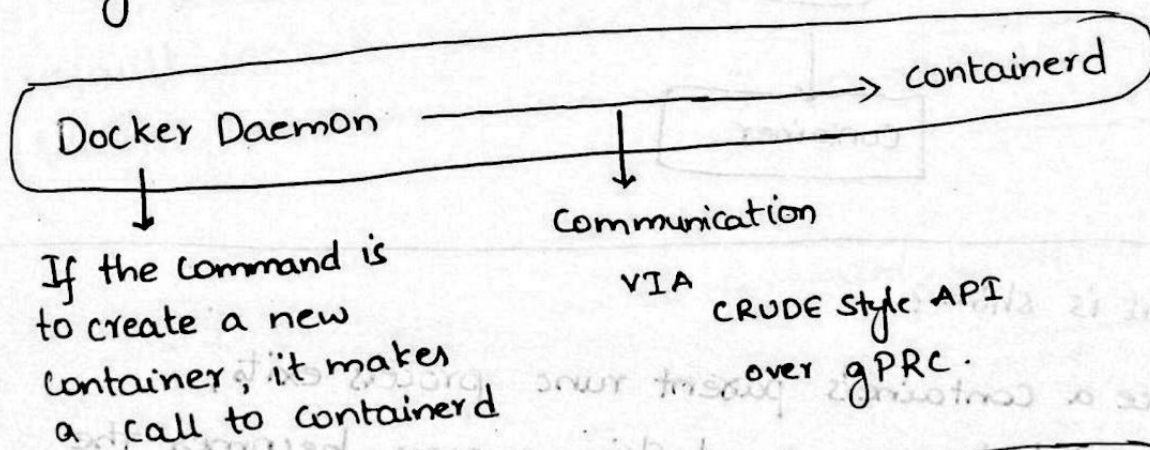 Docker Daemon → containerd
If the command is
to create a new
container, it makes
a call to containerd
communication
VIA
CRUDE style API
over gPRC.